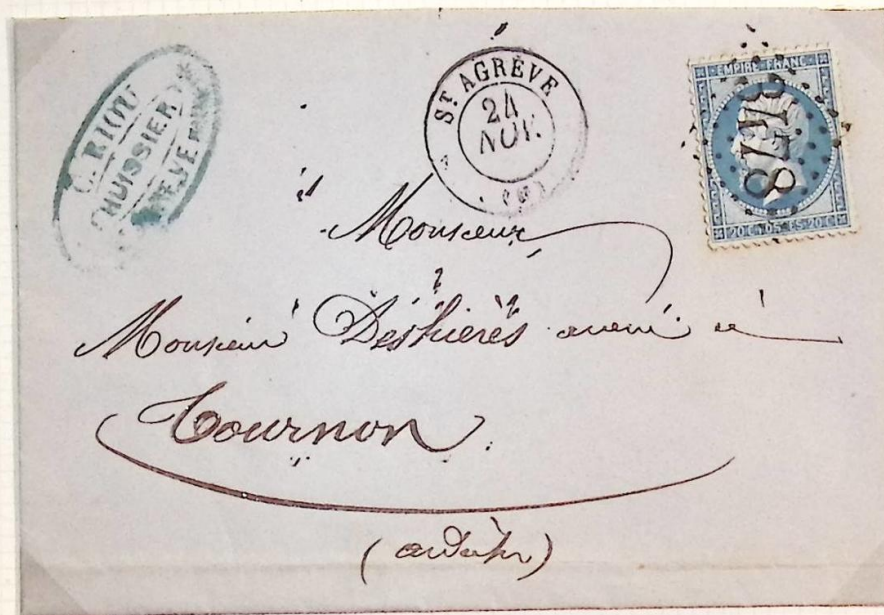 C. RIOU
HUISSIER
ST AGRÈVE
24
NOV.
EMPIRE FRANC
3478
20 C. POSTES 20 C.
Monsieur
Monsieur Deshières avoué à
Tournon
(ardèche)